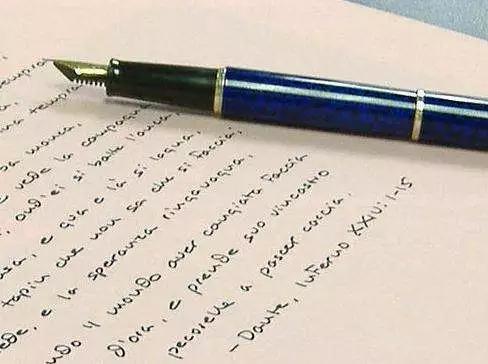 tempra
sua manca,
e vede la campagna
ond'ei si batte l'anca,
e qua e là si lagna,
tapin che non sa che si faccia;
riede, e la speranza ringavagna,
mondo aver cangiata faccia
d'ora, e prende suo vincastro
pecorelle a pascer caccia.
- Dante, Inferno XXIV: 1-15